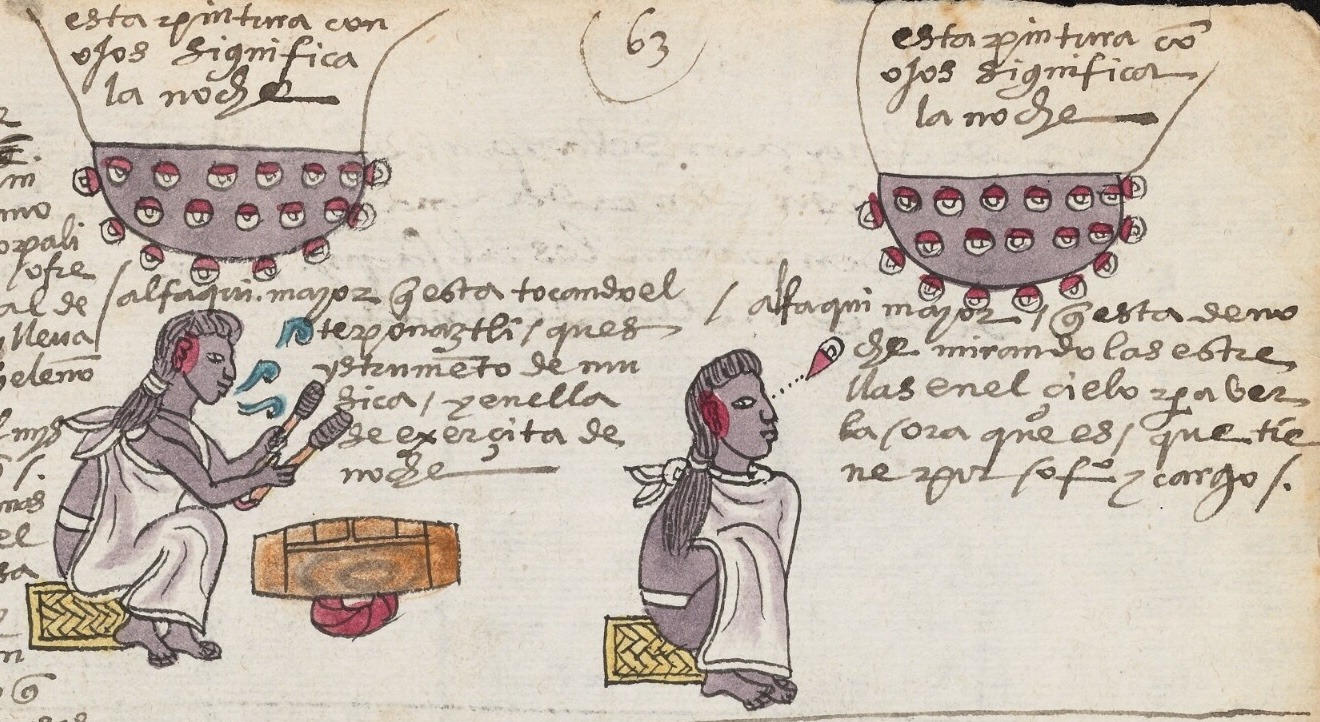 esta pintura con
ojos significa
la noche
63
esta pintura cõ
ojos significa
la noche
alfaqui mayor q̃ esta tocando el
teponaztli / ques
ystrumẽto de mu
sica / y en ella
se exerçita de
noche
/ alfaqui mayor / q̃ esta de no
che mirando las estre
llas en el cielo pa ver
la ora que es / que tie
ne por / ofº y cargo /.
opali
ofre
al de
lleva
el